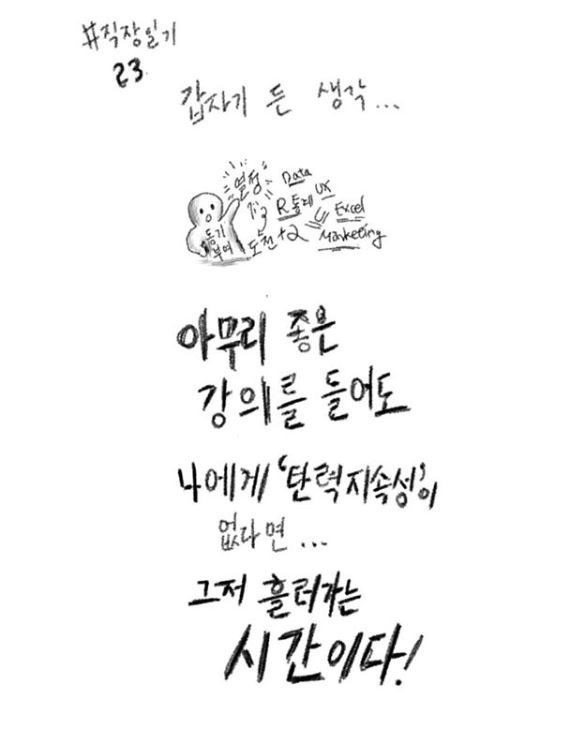 #직장일기
23.
갑자기 든 생각...
열정
Data
R통계
UX
Excel
동기
부여
도전 +2
Marketing
아무리 좋은
강의를 들어도
나에게 '탄력지속성'이
없다면...
그저 흘러가는
시간이다!